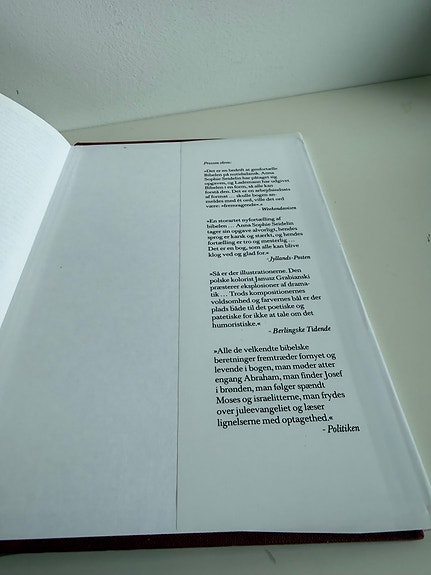 Pressen skrev:
»Det er en bedrift at genfortælle
Bibelen på nutidsdansk. Anna
Sophie Seidelin har påtaget sig
opgaven, og Lademann har udgivet
Bibelen i en form, så alle kan
forstå den. Det er en arbejdsindsats
af format ... skulle bogen an-
meldes med ét ord, ville det ord
være: »fremragende«.«
- Weekendavisen
»En storartet nyfortælling af
bibelen ... Anna Sophie Seidelin
tager sin opgave alvorligt, hendes
sprog er karsk og stærkt, og hendes
fortælling er tro og mesterlig ...
Det er en bog, som alle kan blive
klog ved og glad for.«
- Jyllands-Posten
»Så er der illustrationerne. Den
polske kolorist Janusz Grabianski
præsterer eksplosioner af drama-
tik ... Trods kompositionernes
voldsomhed og farvernes bål er der
plads både til det poetiske og
patetiske for ikke at tale om det
humoristiske.«
- Berlingske Tidende
»Alle de velkendte bibelske
beretninger fremtræder fornyet og
levende i bogen, man møder atter
engang Abraham, man finder Josef
i brønden, man følger spændt
Moses og israelitterne, man frydes
over juleevangeliet og læser
lignelserne med optagethed.«
- Politiken